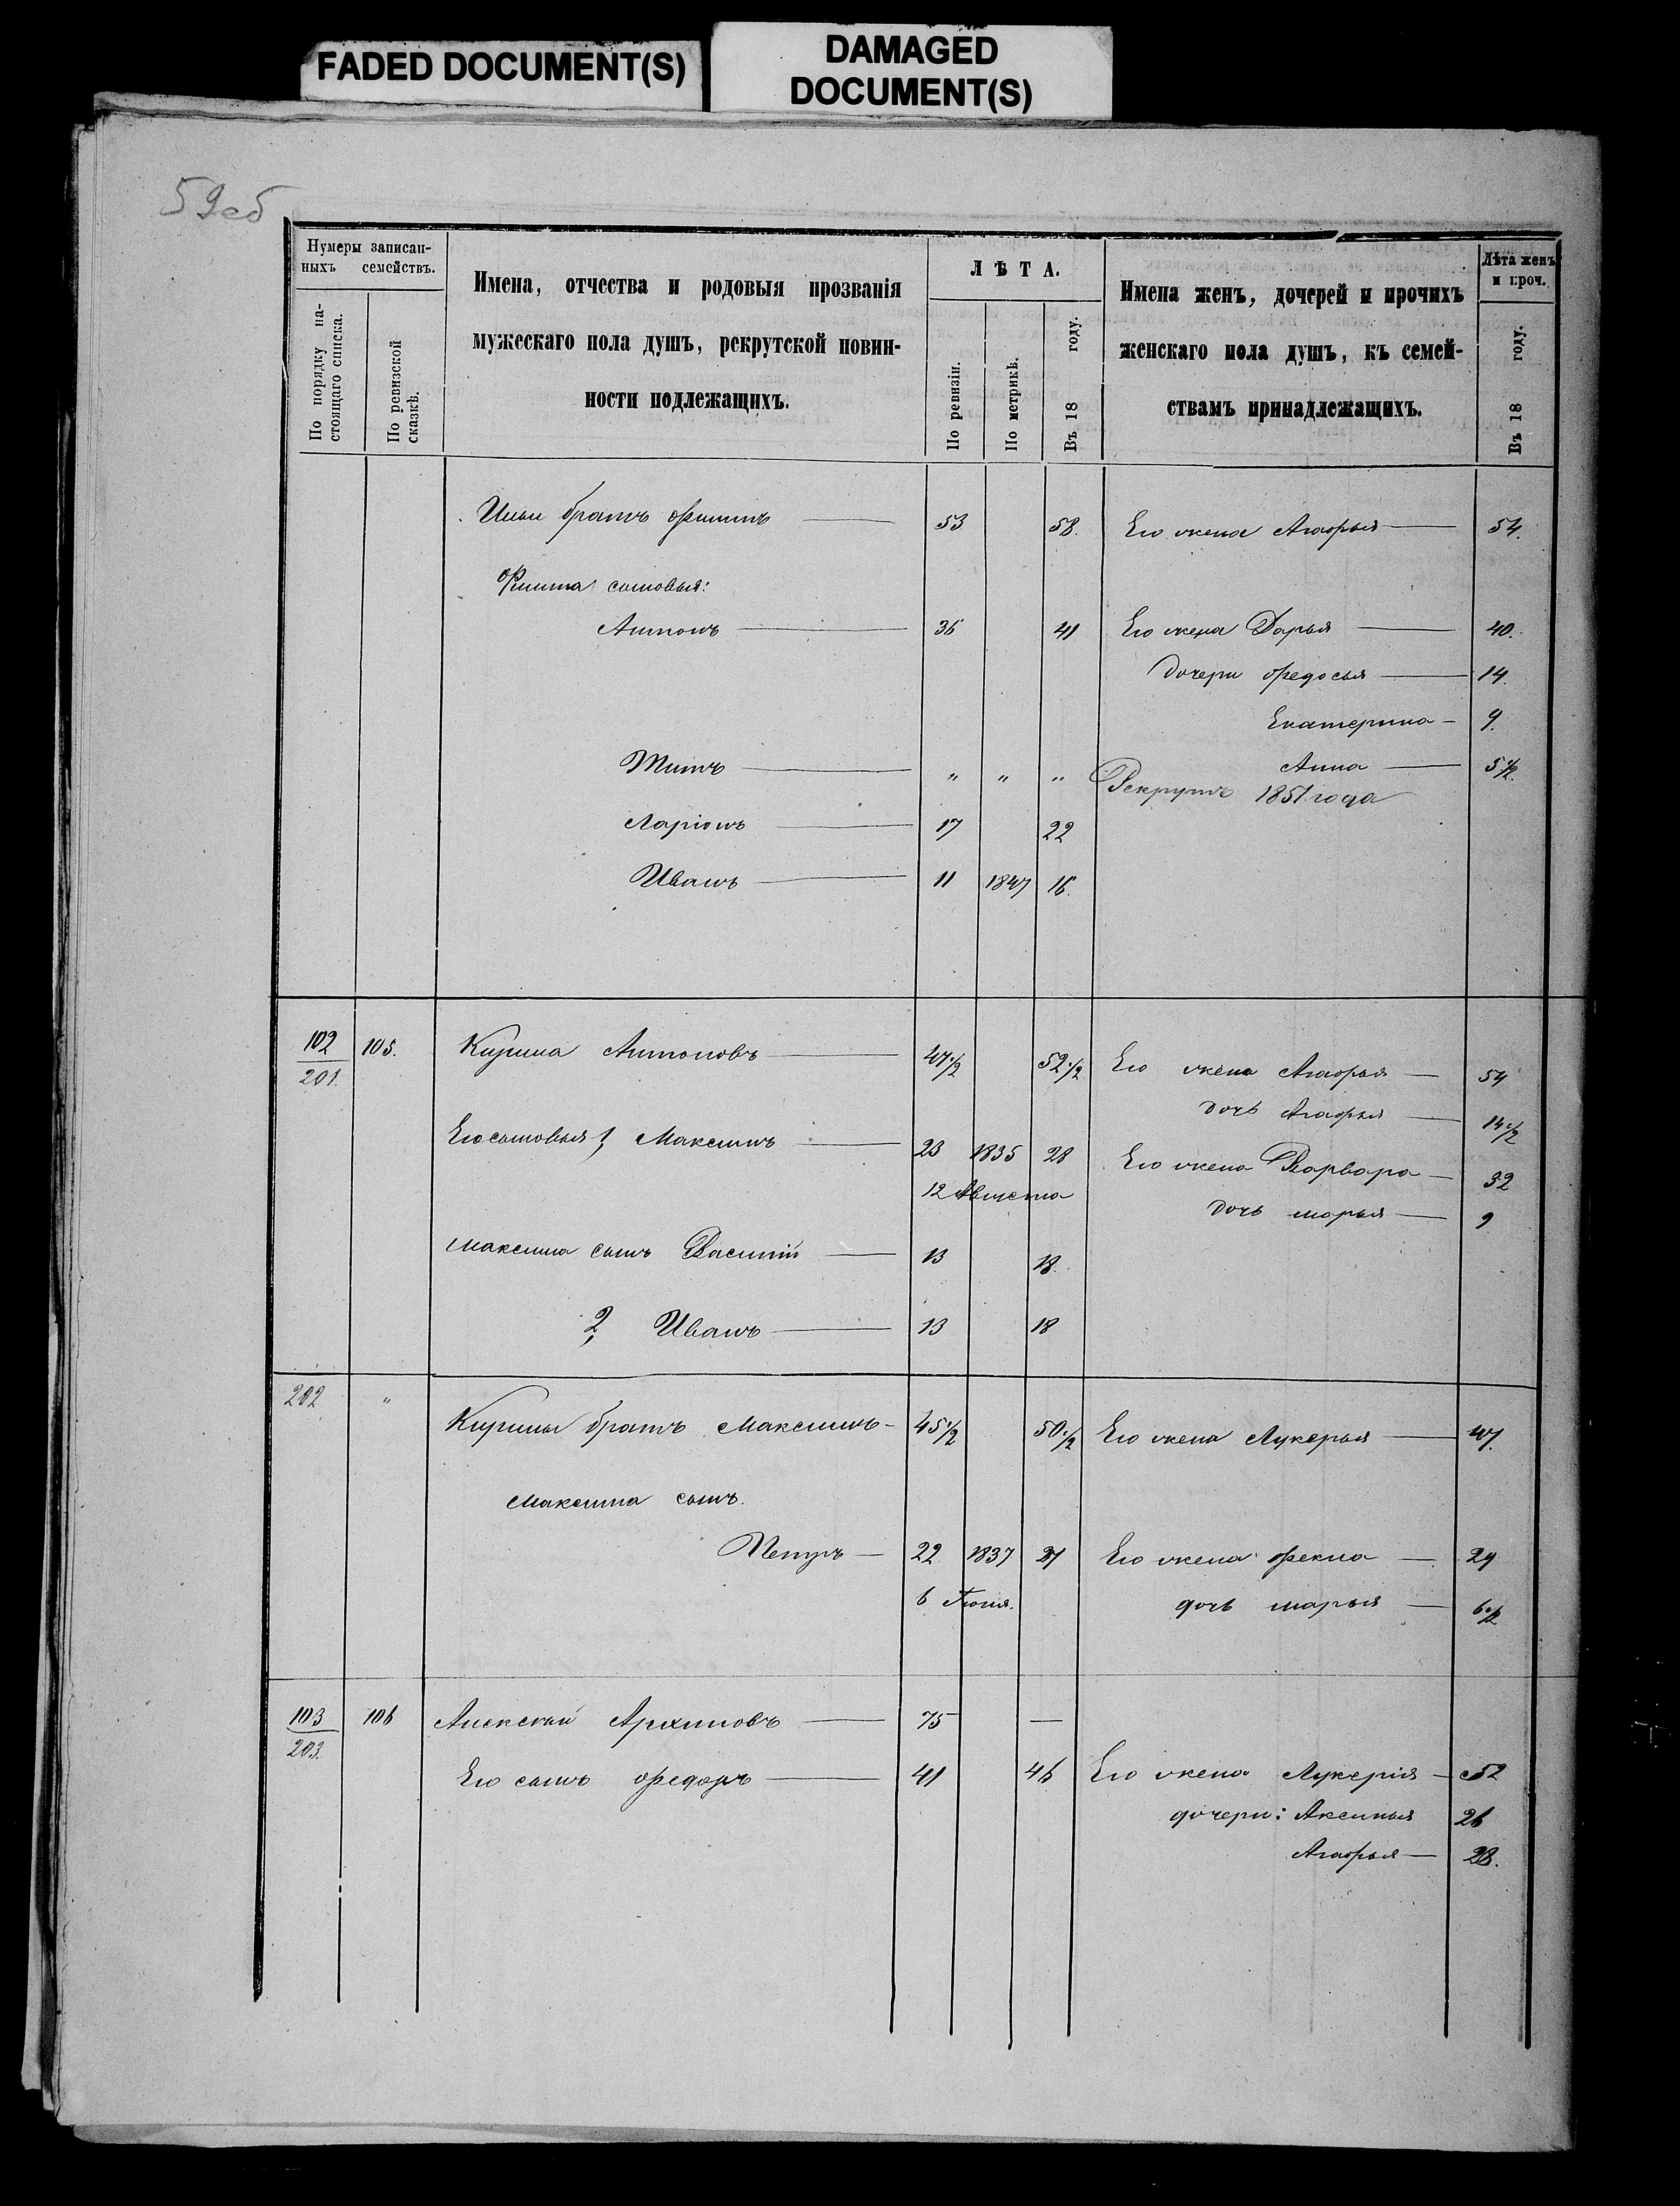 FADED DOCUMENT(S)
DAMAGED
DOCUMENT(S)
59об
Нумеры записан-
ныхъ семействъ.
По порядку на-
стоящаго списка.
По ревизской
сказкѣ.
Имена, отчества и родовыя прозванія
мужескаго пола душъ, рекрутской повин-
ности подлежащихъ.
ЛѢТА.
По ревизіи.
По метрикѣ.
Въ 18 году.
Имена женъ, дочерей и прочихъ
женскаго пола душъ, къ семей-
ствамъ принадлежащихъ.
Лѣта женъ
и проч.
Въ 18 году.
Ильи братъ Филипъ — 53 58. Его жена Агафья — 54.
Филипа сыновья:
Антонъ — 36 41 Его жена Дарья — 40.
дочери Федосья — 14.
Екатерина — 9.
Анна — 5 1/2.
Титъ — " " " Рекрутъ 1851 года
Ларіонъ — 17 22
Иванъ — 11 1847 16.
102 105. Кузьма Антоновъ — 47 1/2 52 1/2 Его жена Агафья — 54
201.
дочь Агафья — 14 1/2
Его сыновья 1, Максимъ — 23 1835 28 Его жена Варвара — 32
12 Августа
дочь Марья — 9
Максима сынъ Василій — 13 18.
2, Иванъ — 13 18
202 "
Кузьмы братъ Максимъ — 45 1/2 50 1/2 Его жена Лукерья — 47.
Максима сынъ.
Петръ — 22 1837 27 Его жена Фекла — 29
6 Іюня.
дочь Марья — 6 1/2
103 106 Алексѣй Архиповъ — 75 —
203.
Его сынъ Федоръ — 41 46 Его жена Лукерія — 52
дочери: Аксинья 26
Агафья — 28.